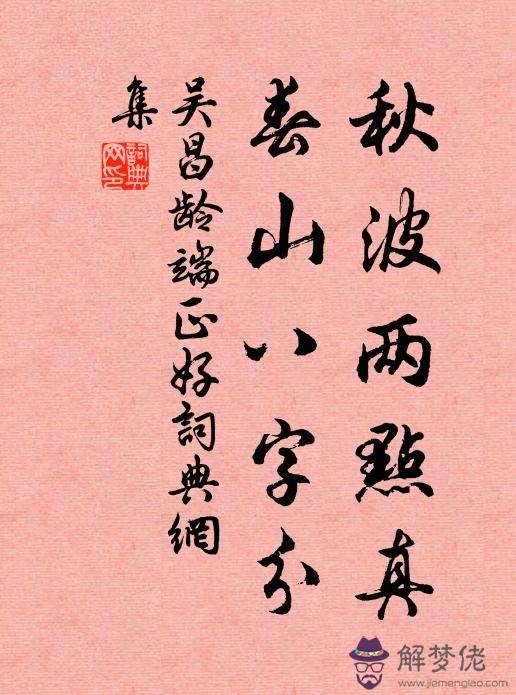 秋波两點真
春山八字分
吴昌龄端正好詞典網
集
詞典
网印
解梦佬
www.jiemenglao.com